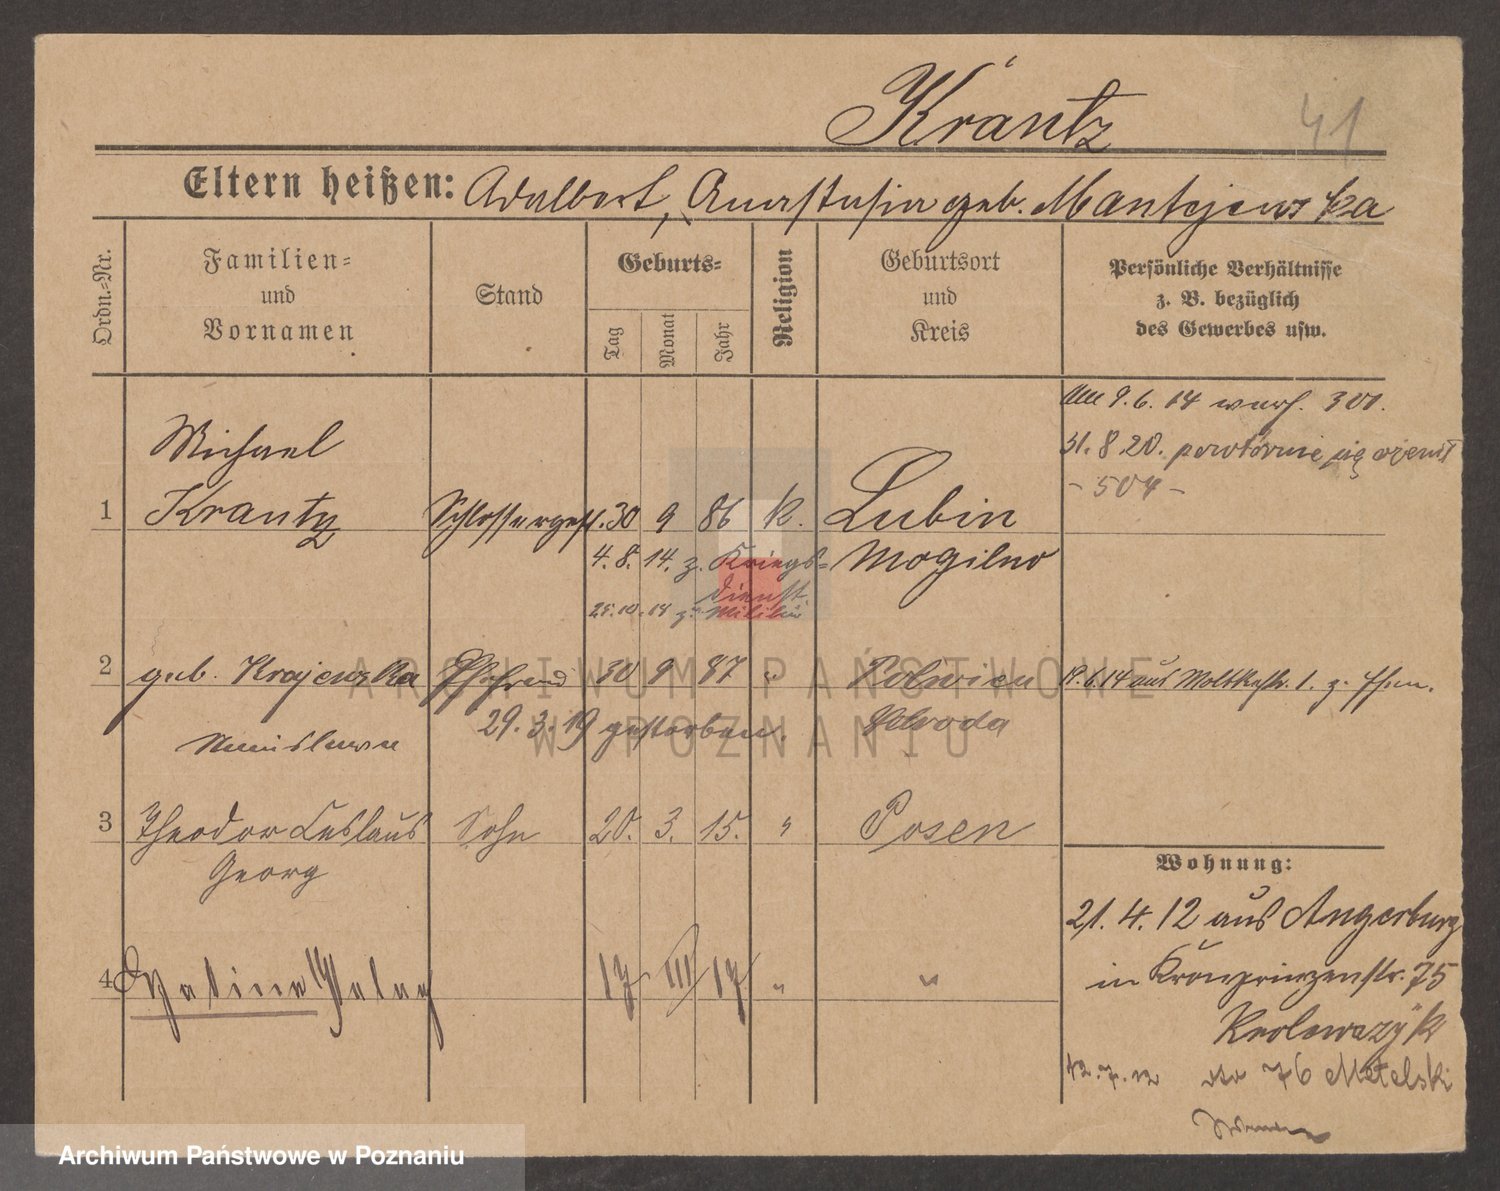 Krantz
41
Eltern heißen: Adalbert, Anastasia geb. Mantejewska
Ordn.-Nr.
Familien-
und
Vornamen
Stand
Geburts-
Tag
Monat
Jahr
Religion
Geburtsort
und
Kreis
Persönliche Verhältnisse
z. B. bezüglich
des Gewerbes usw.
9.6.14 301.
31.8.20. powtórnie się ożenił
- 504 -
1 Michael
Krantz Schlosserges. 30 9 86 k. Lubin
Mogilno
4.8.14. z. Kriegs-
dienst.
25.10.14 z. Militär
2 geb. Krajenzka Ehefrau 30 9 87 "
19.6.14 aus Moltkestr. 1. z.
29.3.19 gestorben. Schroda
3 Theodor Ceslaus Sohn 20. 3. 15. " Posen
Georg
4 17 III 17 " "
Wohnung:
21.4.12 aus Angerburg
in Kronprinzenstr. 75
12.7.12 dto 76 Metelski
ARCHIWUM PAŃSTWOWE
W POZNANIU
Archiwum Państwowe w Poznaniu